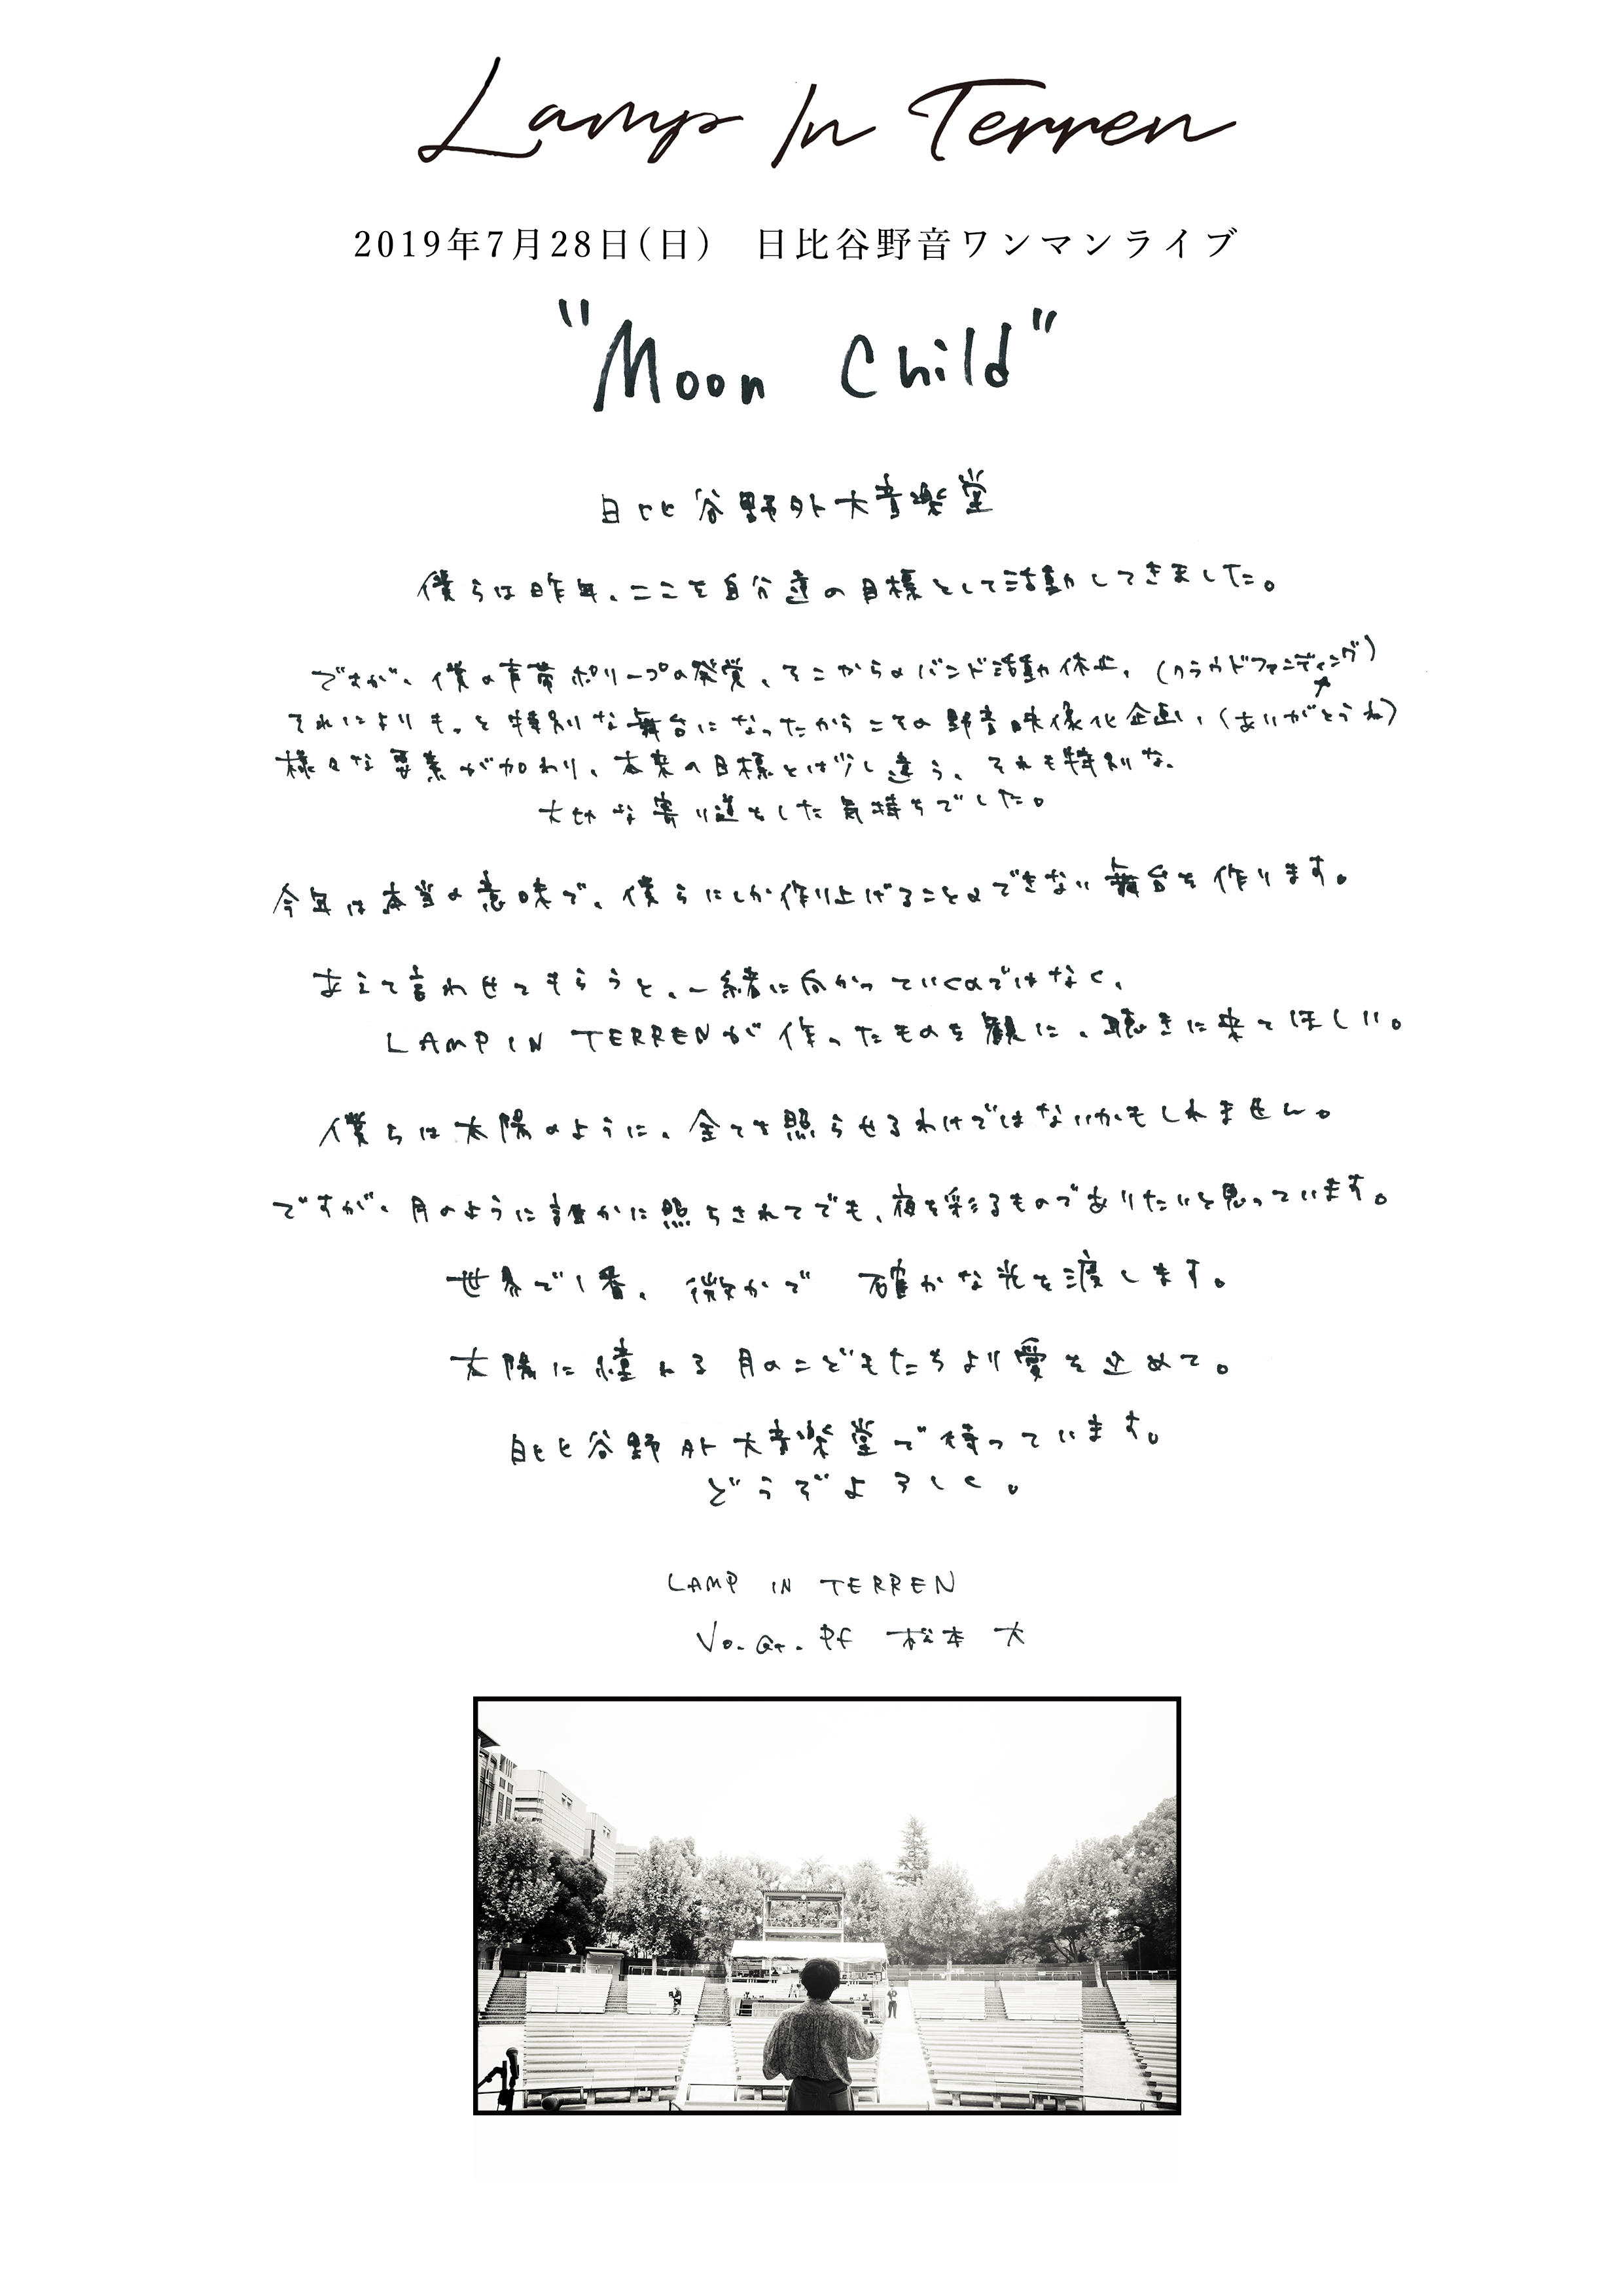 Lamp In Terren
2019年7月28日(日) 日比谷野音ワンマンライブ
"Moon Child"
日比谷野外大音楽堂
僕らは昨年、ここを自分達の目標として活動してきました。
ですが、僕の声帯ポリープの発覚、そこからのバンド活動休止、(クラウドファンディング)
それによりもっと特別な舞台になったからこその野音映像化企画、(ありがとうね)
様々な要素が加わり、本来の目標とは少し違う、それも特別な、
大切な寄り道をした気持ちでした。
今年は本当の意味で、僕らにしか作り上げることのできない舞台を作ります。
あえて言わせてもらうと、一緒に向かっていくのではなく、
LAMP IN TERRENが作ったものを観に、聴きに来てほしい。
僕らは太陽のように、全てを照らせるわけではないかもしれません。
ですが、月のように誰かに照らされてでも、夜を彩るものでありたいと思っています。
世界で1番、微かで 確かな光を渡します。
太陽に憧れる月のこどもたちより愛を込めて。
日比谷野外大音楽堂で待っています。
どうぞよろしく。
LAMP IN TERREN
Vo. Gt. Pf 松本 大